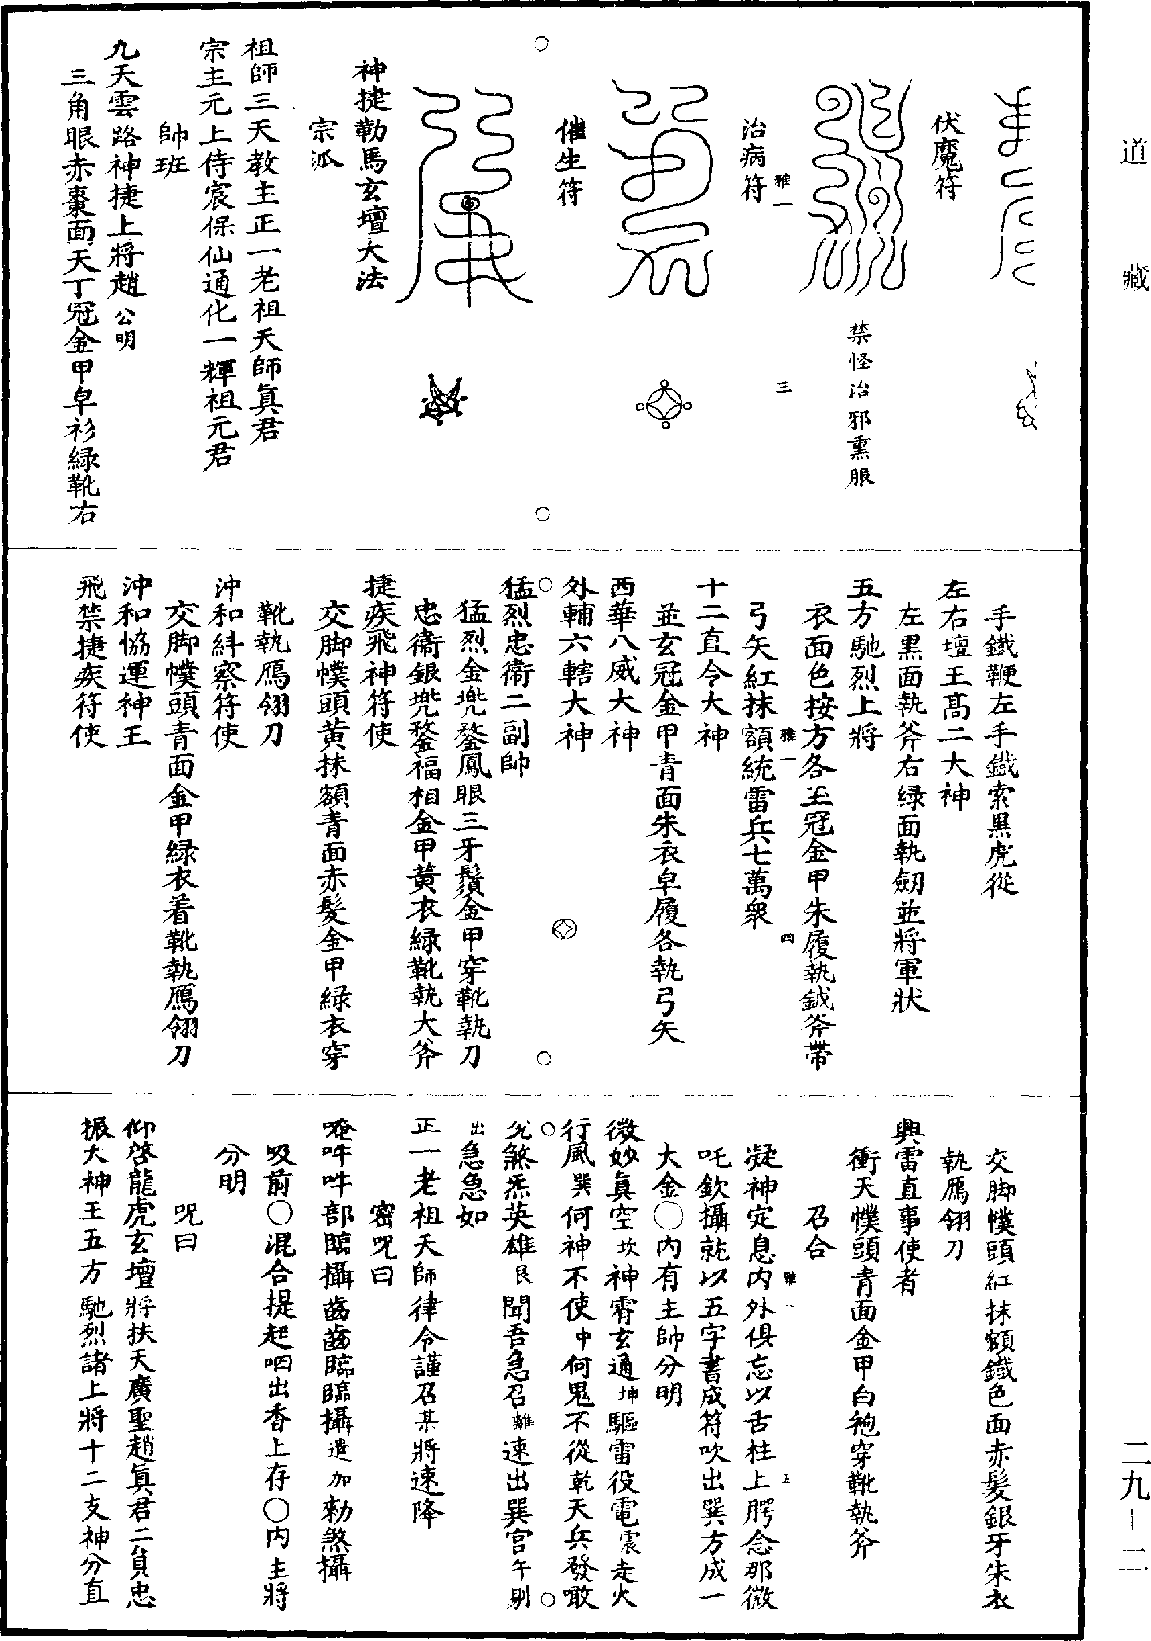 道藏
伏魔符
禁怪治邪熏服
治病符
雅一
三
催生符
神捷勒馬玄壇大法
宗派
祖師三天教主正一老祖天師眞君
宗主元上侍宸保仙通化一輝祖元君
帥班
九天雲路神捷上將趙公明
三角眼赤棗面天丁冠金甲皁衫緑靴右
手鐵鞭左手鐵索黑虎從
左右壇王髙二大神
左黑面執斧右緑面執劒並將軍狀
五方馳烈上將
衣面色按方各玉冠金甲朱履執鉞斧帶
弓矢紅抹額統雷兵七萬衆
雅一
四
十二直令大神
並玄冠金甲青面朱衣皁履各執弓矢
西華八威大神
外輔六轄大神
猛烈忠衛二副帥
猛烈金兜鍪鳳眼三牙鬚金甲穿靴執刀
忠衛銀兜鍪福相金甲黄衣緑靴執大斧
捷疾飛神符使
交脚幞頭黄抹額青面赤髮金甲緑衣穿
靴執鴈翎刀
沖和糾察符使
交脚幞頭青面金甲緑衣着靴執鴈翎刀
沖和協運神王
飛禁捷疾符使
交脚幞頭紅抹額鐵色面赤髮銀牙朱衣
執鴈翎刀
興雷直事使者
衝天幞頭青面金甲白袍穿靴執斧
召合
凝神定息内外俱忘以舌柱上腭念那微
雅一
五
吒欽攝就以五字書成符吹出巽方成一
大金〇内有主帥分明
微妙眞空坎神霄玄通坤驅雷役電震走火
行風巽何神不使中何鬼不從乾天兵發敢
兊煞炁英雄艮聞吾急召離速出巽宫午剔
出急急如
正一老祖天師律令謹召某將速降
密呪曰
唵吽吽部臨攝齒齒臨臨攝遣加勑煞攝
吸前〇混合提起呬出香上存〇内主將
分明
呪曰
仰啓龍虎玄壇將扶天廣聖趙眞君二員忠
振大神王五方馳烈諸上將十二支神分直
二九－二